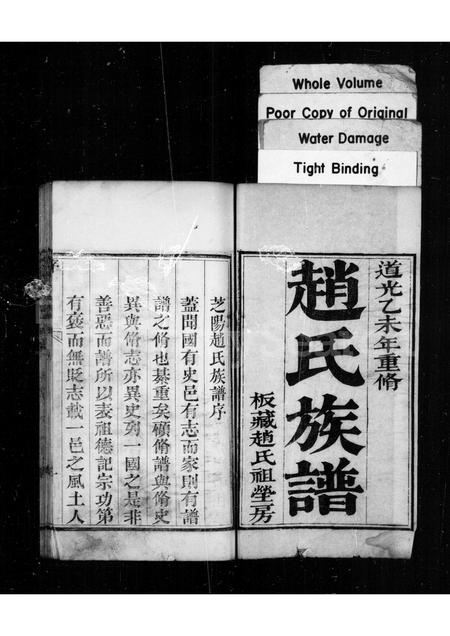 Whole Volume
Poor Copy of Original
Water Damage
Tight Binding
道光乙未年重脩
趙氏族譜
板藏趙氏祖塋房
芝陽趙氏族譜序
蓋聞國有史邑有志而家則有譜
譜之脩也綦重矣顧脩譜與脩史
異與脩志亦異史列一國之是非
善惡而譜所以表祖德記宗功第
有褒而無貶志載一邑之風土人